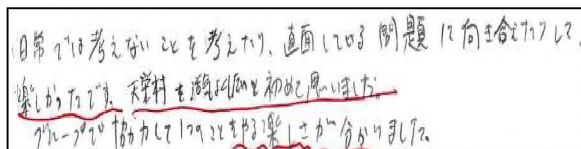 日常では考えないことを考えたり、直面している問題に向き合えたりして、
楽しかったです。天栄村を満喫したいと初めて思いました。
グループで協力して1つのことをやる楽しさが分かりました。